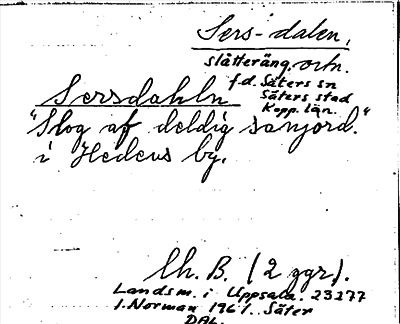 Sers-dalen,
slåtteräng. ortn.
f.d. Säters sn
Säters stad
Kopp. län.
Sersdahln
"Slog af deldig sanjord."
i Hedens by.
Ch. B. (2 ggr).
Landsm. i Uppsala. 23277
I. Norman 1961. Säter
DAL.